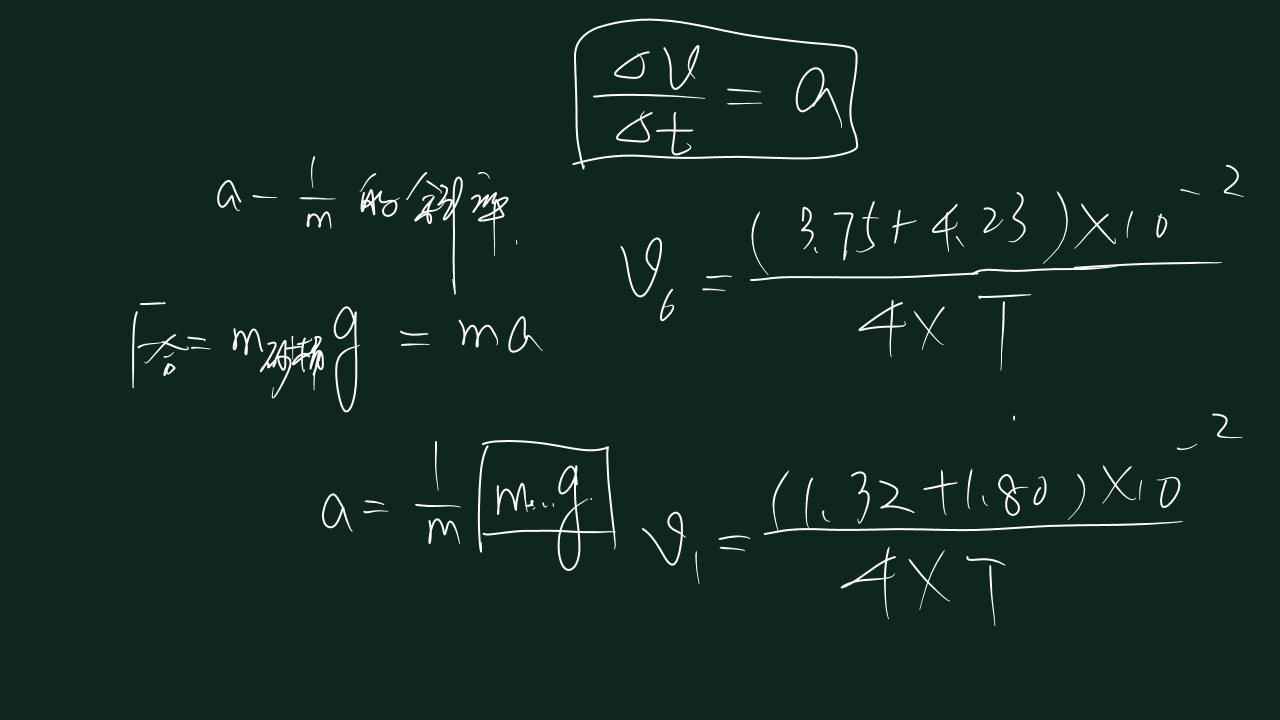 Δv/Δt = a
a - 1/m 的斜率.
F合 = m砝码g = ma
a = 1/m m...g
v₆ = (3.75+4.23)×10⁻²/4×T
v₁ = (1.32+1.80)×10⁻²/4×T